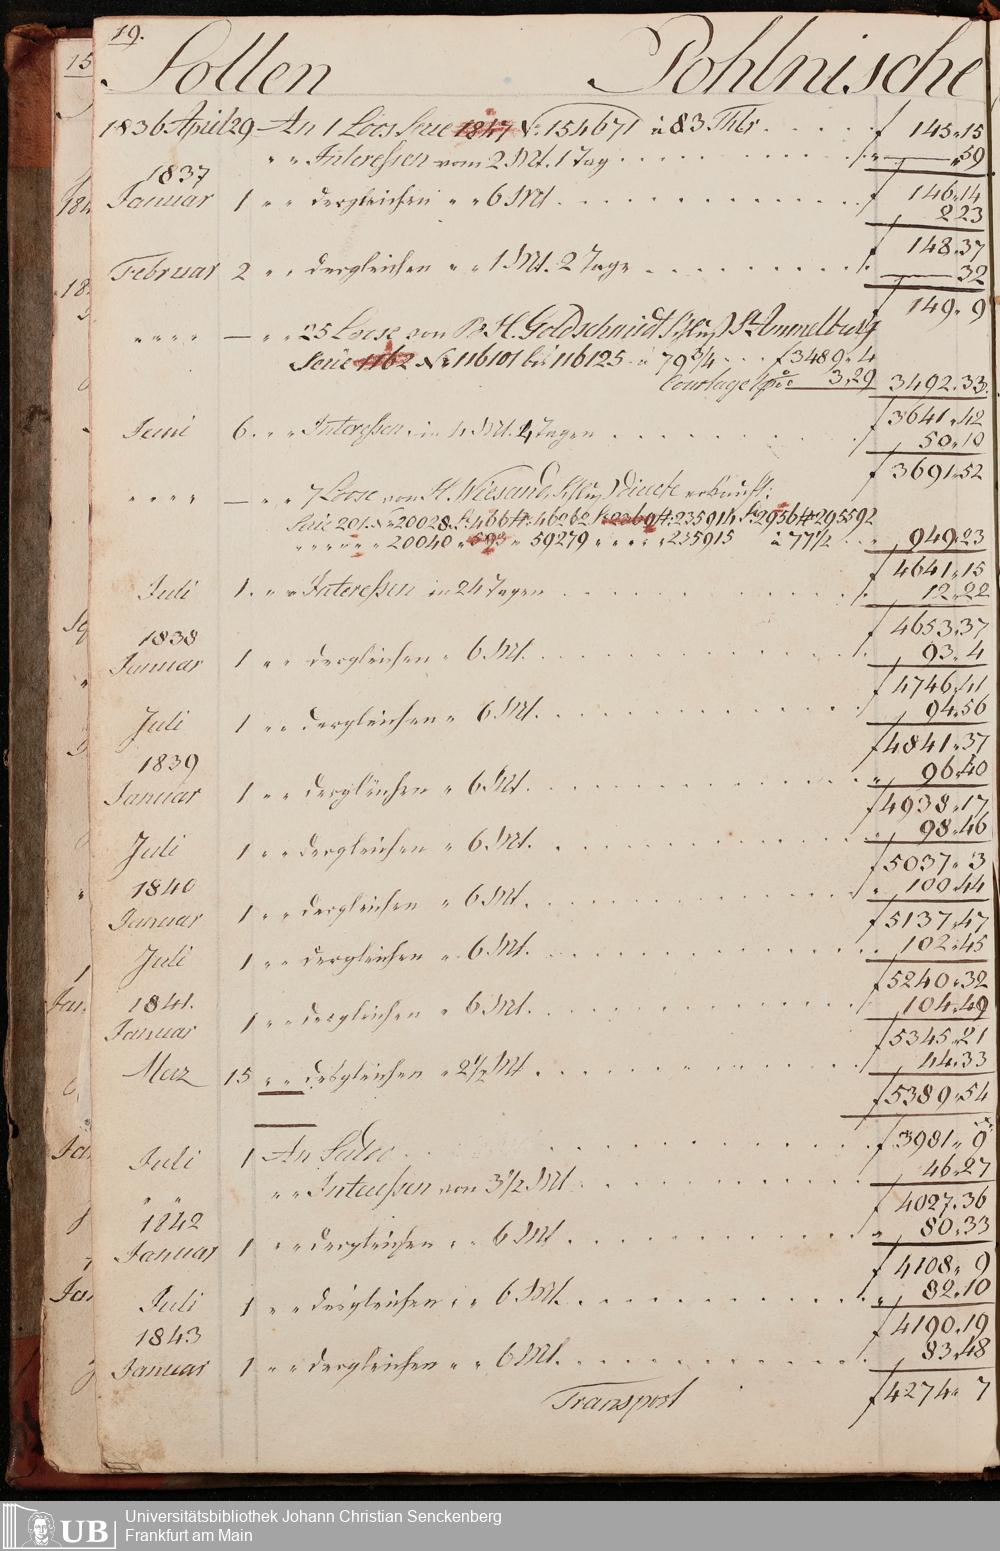 19.
Sollen Pohlnische
1836 April 29 An 1 Loos Serie 1847 No. 154671 à 83 Thlr f 145„15
„ „ Interessen vom 2 Mt. 1 Tag „59
1837
Januar 1 „ „ dergleichen „ „ 6 Mt f 146„14
2„23
f 148„37
Februar 2 „ „ dergleichen „ „ 1 Mt. 2 Tage 32
f 149„9
„ „ „ „ — „ „ 25 Loose von B. H. Goldschmidt
Serie 1162 No. 116101 bis 116125 à 79 3/4 f 3489„4
Courtage 3„29 3492„33
f 3641„42
Juni 6. „ „ Interessen in 4 Mt. 4 Tagen 50„10
f 3691„52
„ „ „ „ — „ „ 7 Loose von H. Wiesand
Serie 201. No. 20028 S. 466 46262 235914 S. 2956 295592
„ „ „ „ 20040 „ 593 „ 59279 „ „ „ „ 235915 à 77 1/2 „ 949„23
f 4641„15
Juli 1. „ „ Interessen in 24 Tagen 12„22
f 4653„37
1838
Januar 1 „ „ dergleichen „ 6 Mt. 93„4
f 4746„41
Juli 1 „ „ dergleichen „ 6 Mt. 94„56
f 4841„37
1839
Januar 1 „ „ dergleichen „ 6 Mt. 96„40
f 4938„17
Juli 1 „ „ dergleichen „ 6 Mt. 98„46
f 5037„3
1840
Januar 1 „ „ dergleichen „ 6 Mt. „ 100„44
f 5137„47
Juli 1 „ „ dergleichen „ 6 Mt. 102„45
f 5240„32
1841.
Januar 1 „ „ dergleichen „ 6 Mt. 104„49
f 5345„21
Merz 15 „ „ desgleichen „ 2 1/2 Mt 44„33
f 5389„54
Juli 1 An Saldo f 3981„9
„ „ „ „ Interessen von 3 1/2 Mt 46„27
f 4027„36
1842
Januar 1 „ „ dergleichen „ „ 6 Mt „ 80„33
f 4108„9
Juli 1 „ „ desgleichen „ „ 6 Mt. „ 82„10
f 4190„19
1843
Januar 1 „ „ dergleichen „ „ 6 Mt. 83„48
Transport f 4274„7
UB
Universitätsbibliothek Johann Christian Senckenberg
Frankfurt am Main